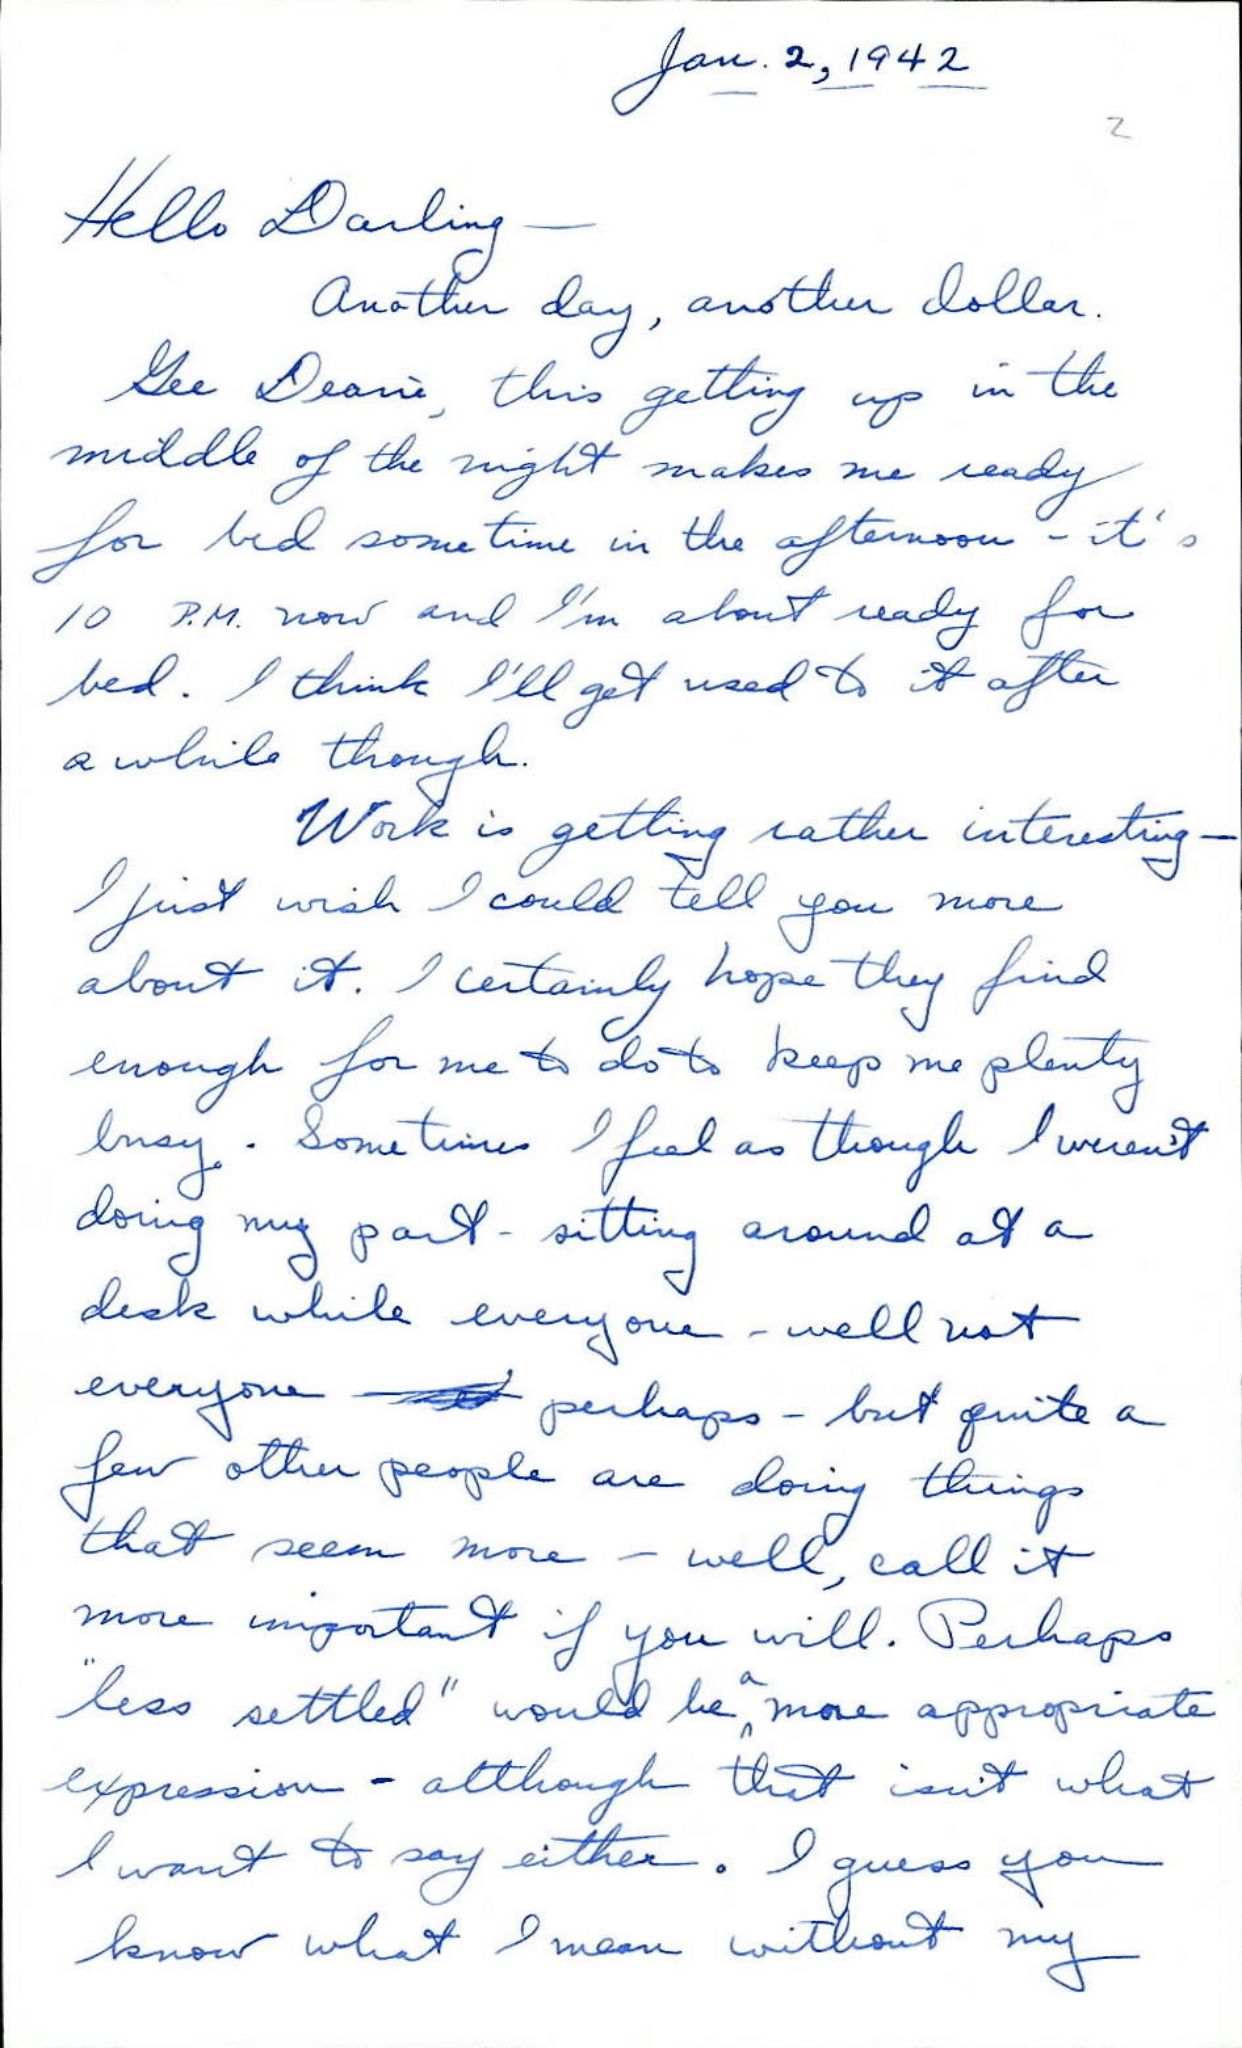 Jan. 2, 1942
2
Hello Darling —
Another day, another dollar.
Gee Dearie, this getting up in the
middle of the night makes me ready
for bed sometime in the afternoon - it's
10 P.M. now and I'm about ready for
bed. I think I'll get used to it after
a while though.
Work is getting rather interesting —
I just wish I could tell you more
about it. I certainly hope they find
enough for me to do to keep me plenty
busy. Sometimes I feel as though I weren't
doing my part - sitting around at a
desk while everyone - well not
everyone perhaps - but quite a
few other people are doing things
that seem more - well, call it
more important if you will. Perhaps
"less settled" would be a more appropriate
expression - although that isn't what
I want to say either. I guess you
know what I mean without my